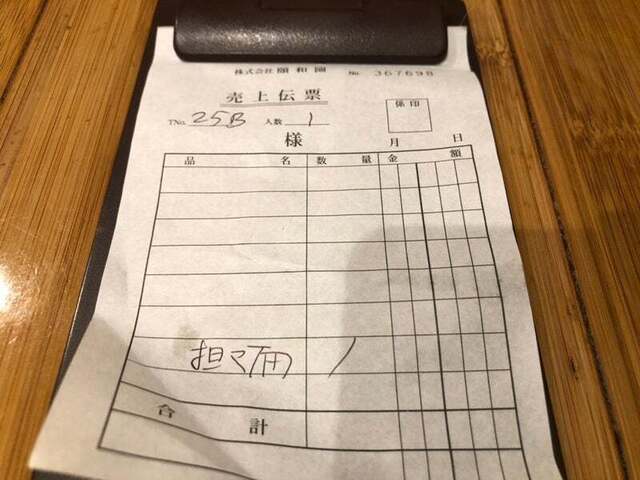 株式会社 頤和園 No. 367698
売上伝票
係印
TNo. 25B 人数 1
様 月 日
品 名 数 量 金 額
担々 1
合 計